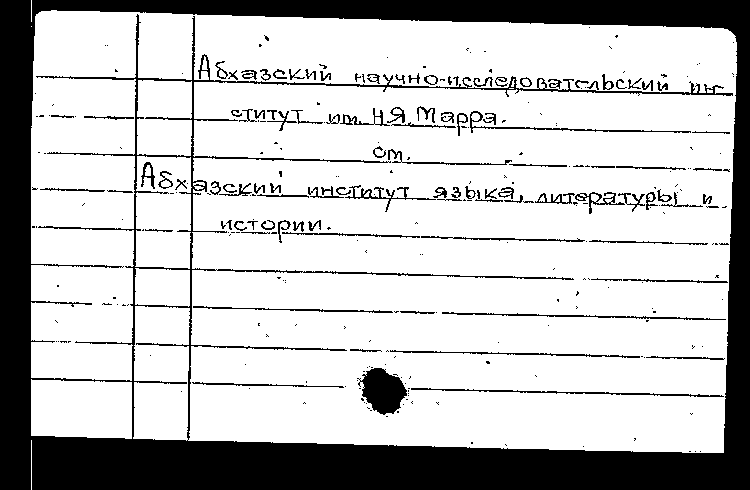 Абхазский научно-исследовательский ин-
ститут им. Н.Я. Марра.
см.
Абхазский институт языка, литературы и
истории.